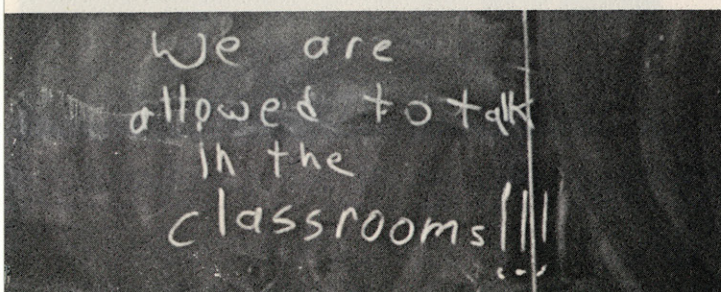 We are
allowed to talk
in the
classrooms!!!!